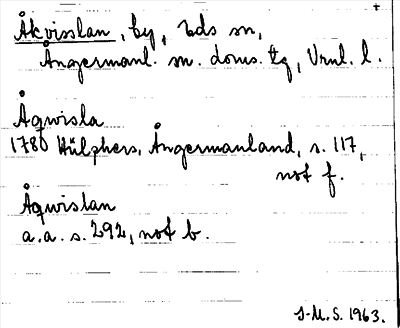 Åkvisslan, by, Eds sn,
Ångermanl. m. doms. tg, Vrnl. l.
Åqwisla
1780 Hülphers, Ångermanland, s. 117,
not f.
Åqwislan
a.a. s. 292, not b.
J-M.S. 1963.